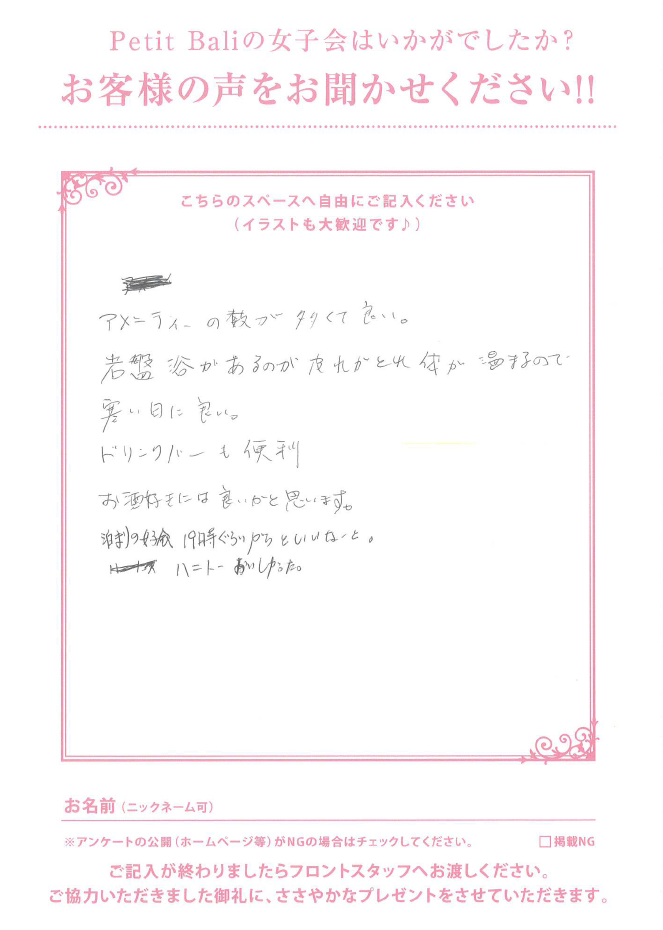 Petit Baliの女子会はいかがでしたか？
お客様の声をお聞かせください!!
こちらのスペースへ自由にご記入ください
（イラストも大歓迎です♪）
アメニティーの数が多くて良い。
岩盤浴があるのが疲れがとれ体が温まるので
寒い日に良い。
ドリンクバーも便利
お酒好きには良いかと思います。
泊まりの女子会 19時ぐらいからといいなーと。
ハニトーおいしかった。
お名前（ニックネーム可）
※アンケートの公開（ホームページ等）がNGの場合はチェックしてください。 □掲載NG
ご記入が終わりましたらフロントスタッフへお渡しください。
ご協力いただきました御礼に、ささやかなプレゼントをさせていただきます。